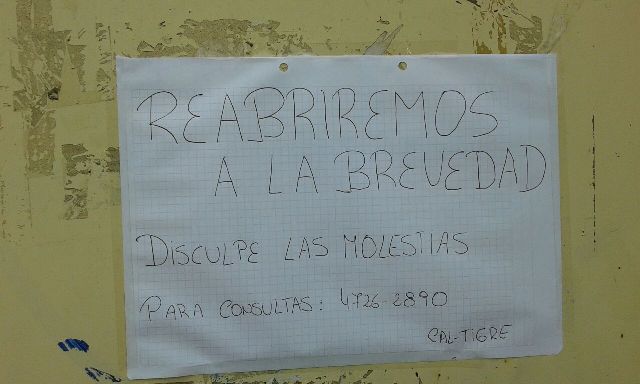 REABRIREMOS
A LA BREVEDAD
DISCULPE LAS MOLESTIAS
PARA CONSULTAS: 4726-2890
CAL-TIGRE